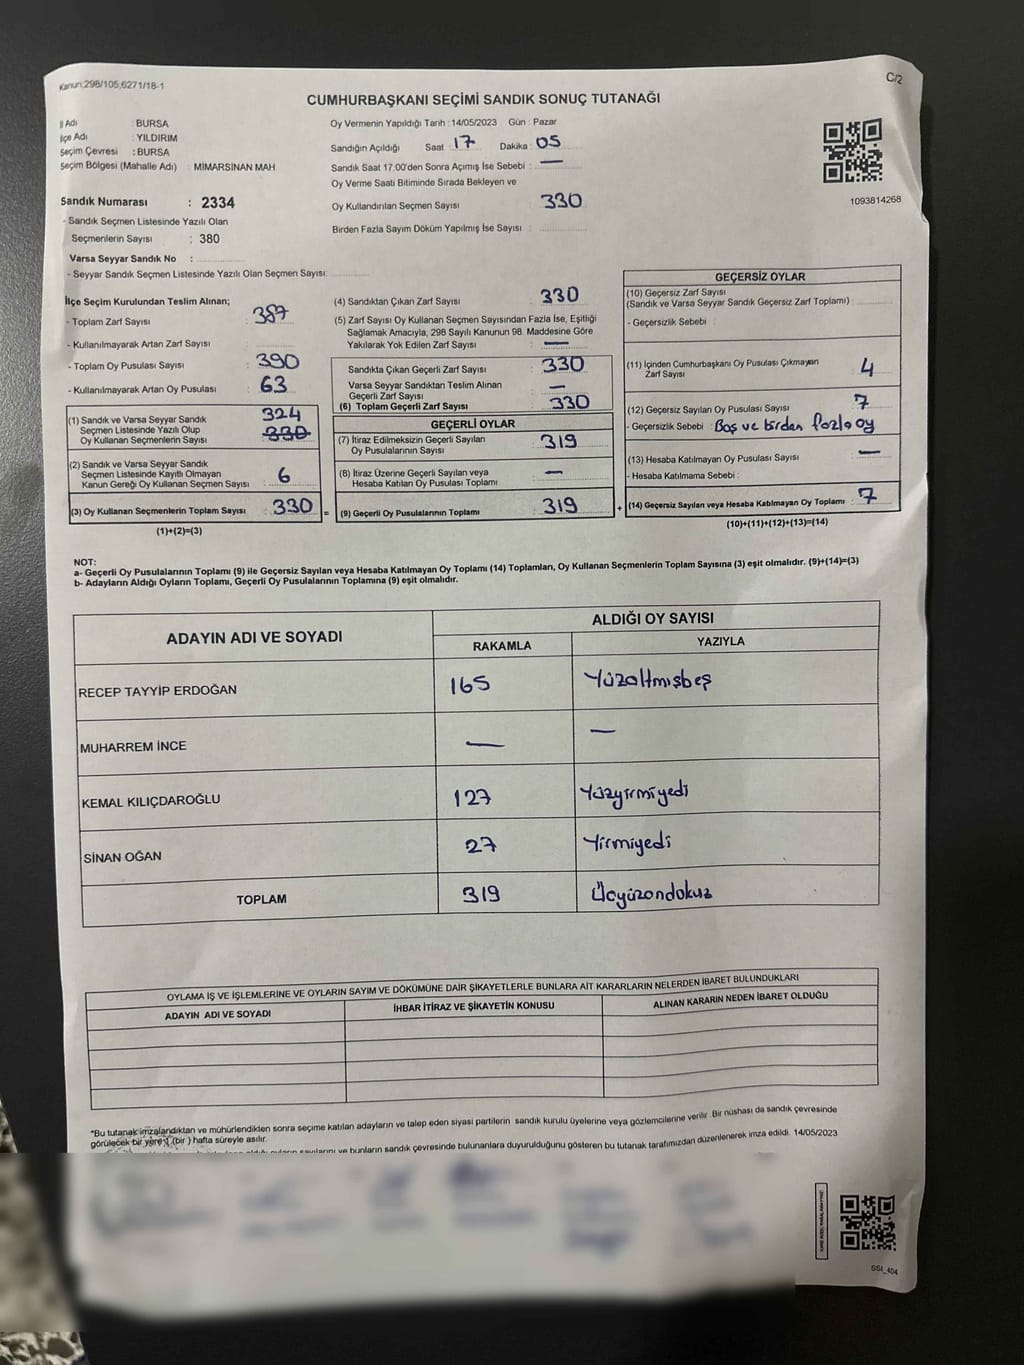 Kanun:298/105;6271/18-1
C/2
CUMHURBAŞKANI SEÇİMİ SANDIK SONUÇ TUTANAĞI
İl Adı : BURSA
İlçe Adı : YILDIRIM
Seçim Çevresi : BURSA
Seçim Bölgesi (Mahalle Adı) : MİMARSİNAN MAH
Sandık Numarası : 2334
- Sandık Seçmen Listesinde Yazılı Olan
Seçmenlerin Sayısı : 380
Varsa Seyyar Sandık No :
- Seyyar Sandık Seçmen Listesinde Yazılı Olan Seçmen Sayısı:
Oy Vermenin Yapıldığı Tarih :14/05/2023 Gün : Pazar
Sandığın Açıldığı Saat : 17 Dakika : 05
Sandık Saat 17:00'den Sonra Açımış İse Sebebi : —
Oy Verme Saati Bitiminde Sırada Bekleyen ve
Oy Kullandırılan Seçmen Sayısı : 330
Birden Fazla Sayım Döküm Yapılmış İse Sayısı :
1093814268
İlçe Seçim Kurulundan Teslim Alınan;
- Toplam Zarf Sayısı : 387
- Kullanılmayarak Artan Zarf Sayısı :
- Toplam Oy Pusulası Sayısı : 390
- Kullanılmayarak Artan Oy Pusulası : 63
(1) Sandık ve Varsa Seyyar Sandık 324
Seçmen Listesinde Yazılı Olup 330
Oy Kullanan Seçmenlerin Sayısı
(2) Sandık ve Varsa Seyyar Sandık
Seçmen Listesinde Kayıtlı Olmayan 6
Kanun Gereği Oy Kullanan Seçmen Sayısı
(3) Oy Kullanan Seçmenlerin Toplam Sayısı 330 =
(1)+(2)=(3)
(4) Sandıktan Çıkan Zarf Sayısı 330
(5) Zarf Sayısı Oy Kullanan Seçmen Sayısından Fazla İse, Eşitliği
Sağlamak Amacıyla, 298 Sayılı Kanunun 98. Maddesine Göre
Yakılarak Yok Edilen Zarf Sayısı : —
Sandıkta Çıkan Geçerli Zarf Sayısı 330
Varsa Seyyar Sandıktan Teslim Alınan
Geçerli Zarf Sayısı —
(6) Toplam Geçerli Zarf Sayısı 330
GEÇERLİ OYLAR
(7) İtiraz Edilmeksizin Geçerli Sayılan
Oy Pusulasının Sayısı 319
(8) İtiraz Üzerine Geçerli Sayılan veya
Hesaba Katılan Oy Pusulası Toplamı —
(9) Geçerli Oy Pusulalarının Toplamı 319 +
GEÇERSİZ OYLAR
(10) Geçersiz Zarf Sayısı
(Sandık ve Varsa Seyyar Sandık Geçersiz Zarf Toplamı) :
- Geçersizlik Sebebi :
(11) İçinden Cumhurbaşkanı Oy Pusulası Çıkmayan
Zarf Sayısı 4
(12) Geçersiz Sayılan Oy Pusulası Sayısı 7
- Geçersizlik Sebebi : Boş ve birden fazla oy
(13) Hesaba Katılmayan Oy Pusulası Sayısı —
- Hesaba Katılmama Sebebi :
(14) Geçersiz Sayılan veya Hesaba Katılmayan Oy Toplamı 7
(10)+(11)+(12)+(13)=(14)
NOT:
a- Geçerli Oy Pusulalarının Toplamı (9) ile Geçersiz Sayılan veya Hesaba Katılmayan Oy Toplamı (14) Toplamları, Oy Kullanan Seçmenlerin Toplam Sayısına (3) eşit olmalıdır. (9)+(14)=(3)
b- Adayların Aldığı Oyların Toplamı, Geçerli Oy Pusulalarının Toplamına (9) eşit olmalıdır.
ADAYIN ADI VE SOYADI
ALDIĞI OY SAYISI
RAKAMLA YAZIYLA
RECEP TAYYİP ERDOĞAN 165 Yüzaltmışbeş
MUHARREM İNCE — —
KEMAL KILIÇDAROĞLU 127 Yüzyirmiyedi
SİNAN OĞAN 27 Yirmiyedi
TOPLAM 319 Üçyüzondokuz
OYLAMA İŞ VE İŞLEMLERİNE VE OYLARIN SAYIM VE DÖKÜMÜNE DAİR ŞİKAYETLERLE BUNLARA AİT KARARLARIN NELERDEN İBARET BULUNDUKLARI
ADAYIN ADI VE SOYADI İHBAR İTİRAZ VE ŞİKAYETİN KONUSU ALINAN KARARIN NEDEN İBARET OLDUĞU
*Bu tutanak imzalandıktan ve mühürlendikten sonra seçime katılan adayların ve talep eden siyasi partilerin sandık kurulu üyelerine veya gözlemcilerine verilir. Bir nüshası da sandık çevresinde
görülecek bir yere 1 (bir ) hafta süreyle asılır.
sayılarını ve bunların sandık çevresinde bulunanlara duyurulduğunu gösteren bu tutanak tarafımızdan düzenlenerek imza edildi. 14/05/2023
SSI_404